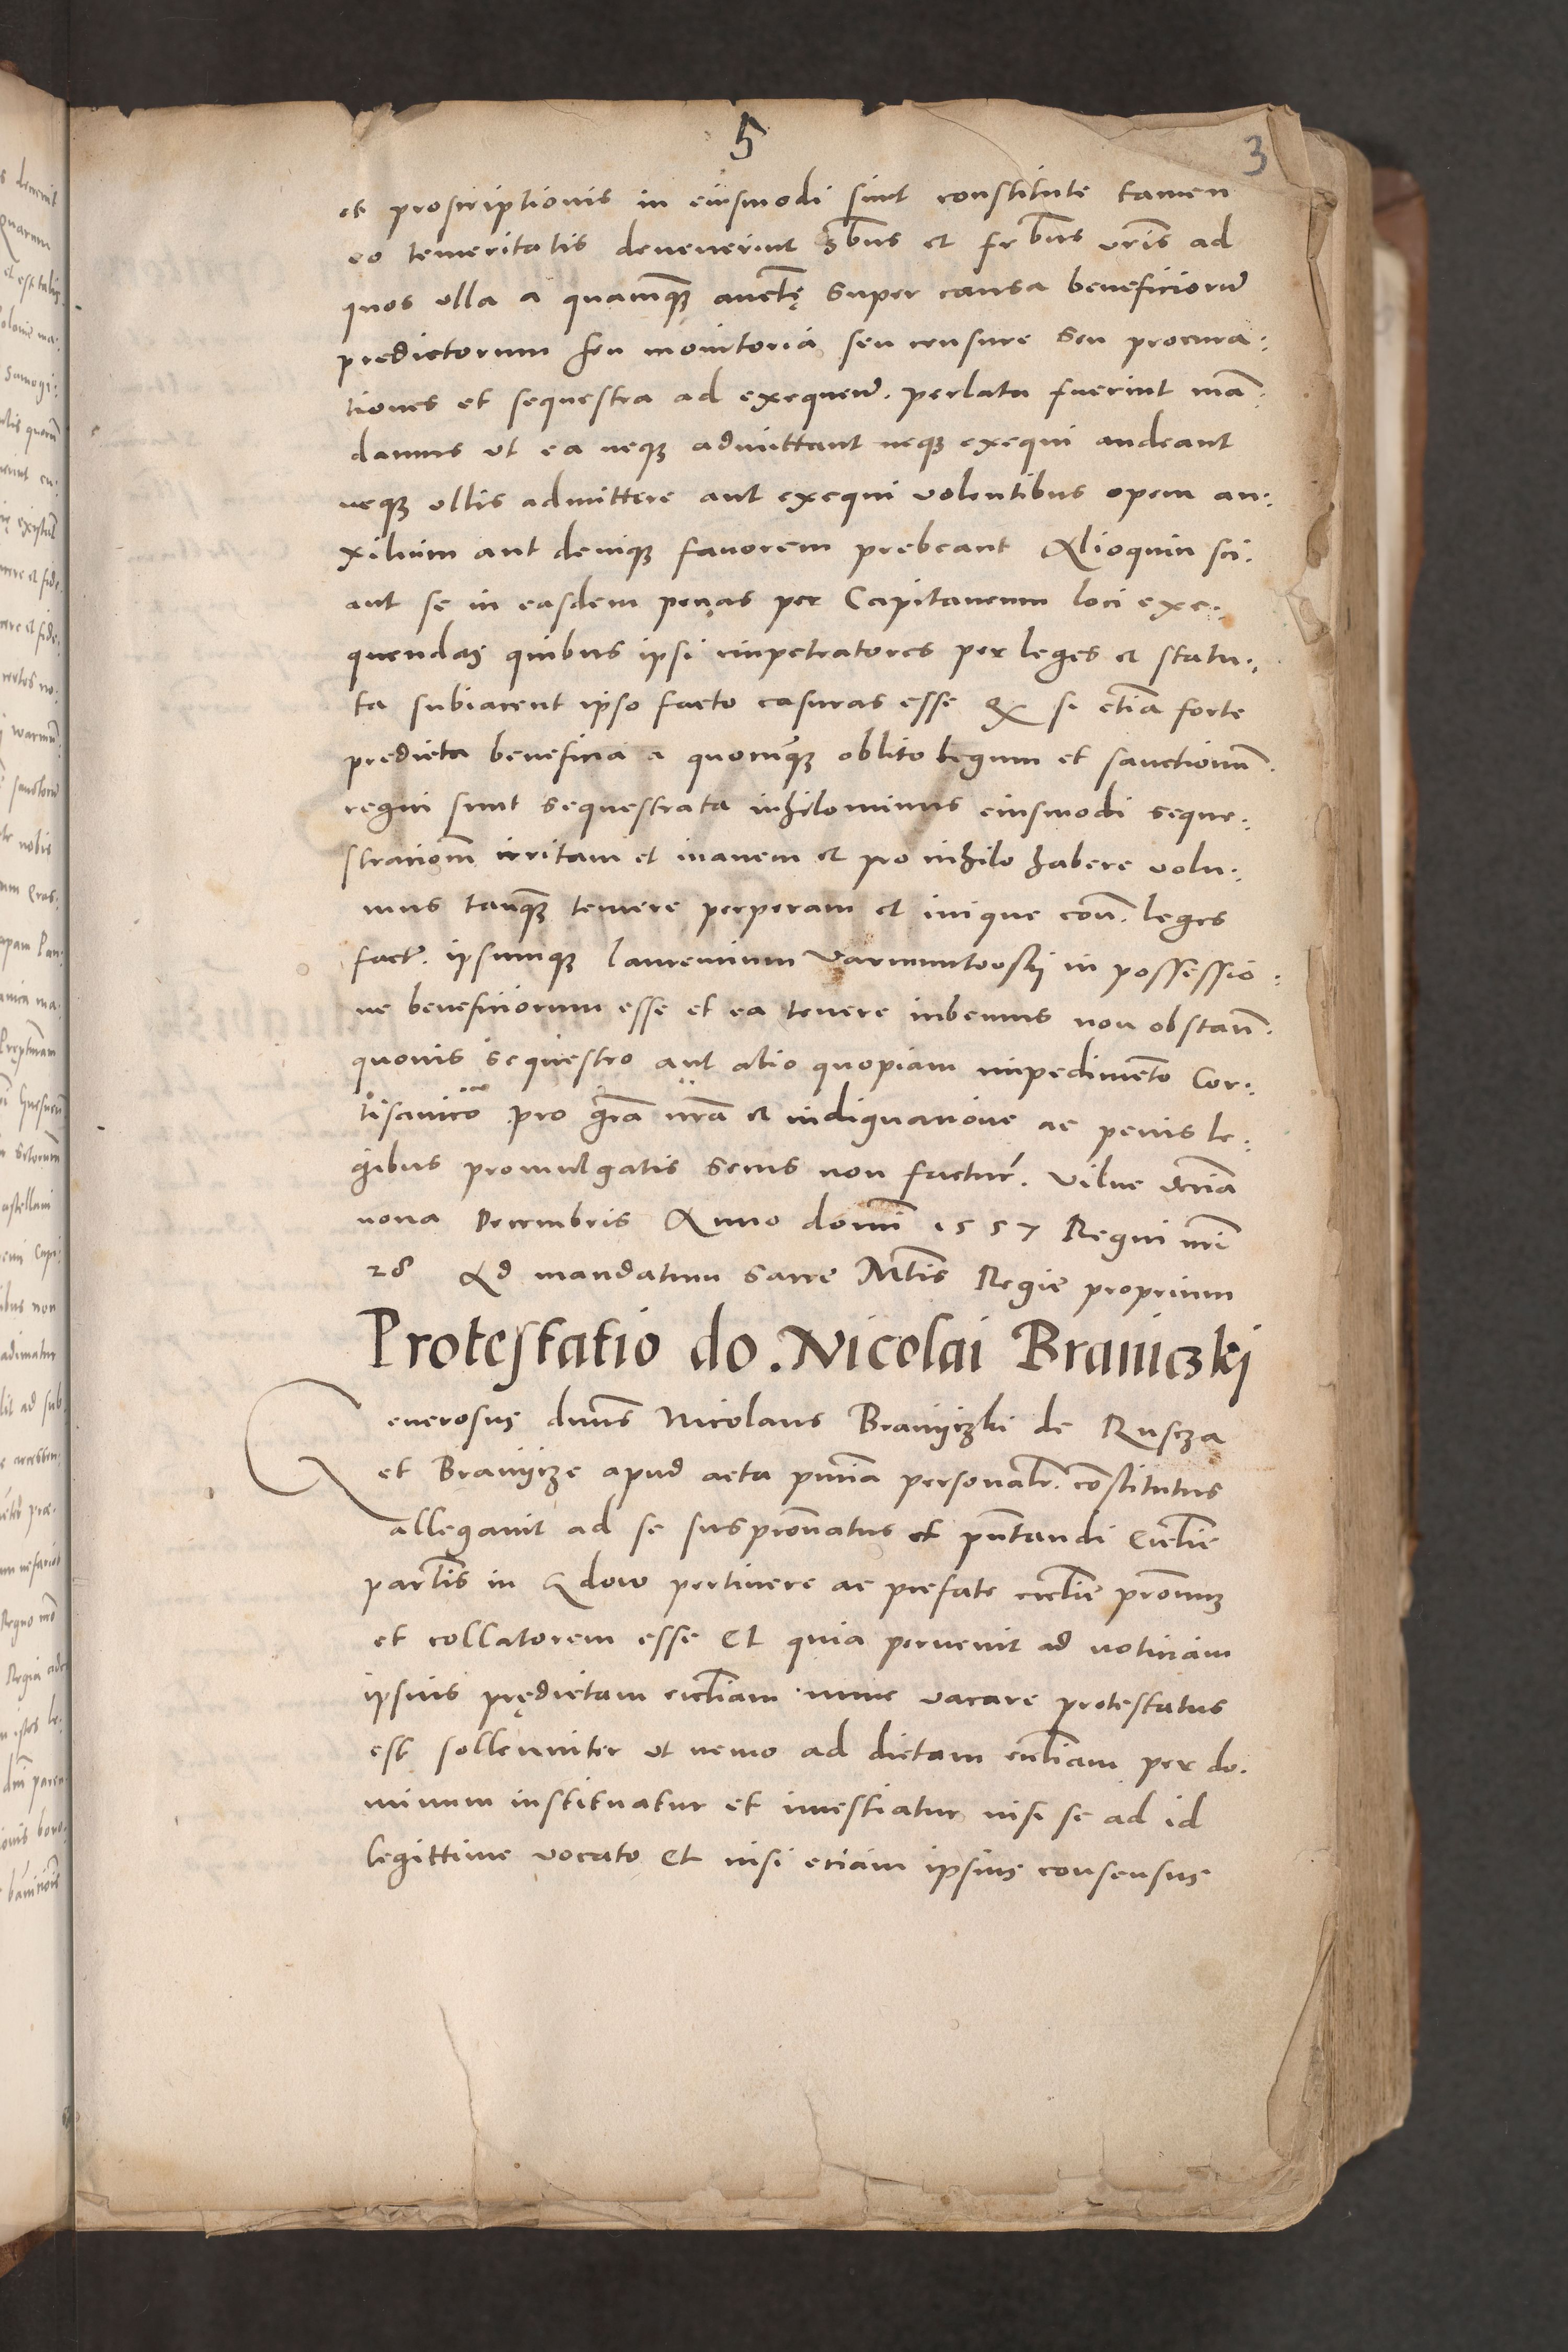 5
3
et proscriptionis in eiusmodi sint constitute tamen
eo temeritatis devenerint et frbus vris ad
quos ulla a quamqȝ super causa beneficiorū
predictorum seu monitoria seu censure seu procura:
tiones et sequestra ad exequenđ. perlata fuerint mā:
damus ut ea neqȝ admittant neqȝ exequi audeant
neqȝ ullis admittere aut exequi volentibus opem au:
xilium aut deniqȝ favorem prebeant Alioquin sci:
ant se in easdem penas per Capitaneum loci exe:
quendas quibus ipsi impetratores per leges et statu:
ta subiacent ipso facto casuras esse Qƺ si etiā forte
predicta beneficia a quocūqȝ oblito legum et sanctionū.
regni sunt sequestrata nihilominus eiusmodi seque:
strationem irritam et inanem et pro nihilo habere volu:
mus tanqȝ temere perperam et inique con̄. leges
factā. ipsumqȝ laurentium Varmuntovskj in possessio:
ne beneficiorum esse et ea tenere iubemus non obstan̄.
quovis sequestro aut alio quopiam impedimēto Cor:
tisanico pro grā nrā et indignatione ac penis le:
gibus promulgatis secus non factur̄. Vilne
nona Decembris Anno domī 1557 Regni nrī
28 Ad mandatum sacre Mtis Regie proprium
Protestatio do. Nicolai Braniczki
Generosus dnus Nicolaus Branijczki de Ruscza
et Branijcze apud acta pntia personalr̄. cōstitutus
allegavit ad se ius pronatus et pntandi Ecclie
partis in Gdow pertinere ac prefate ecclie pronum
et collatorem esse Et quia pervenit ad noticiam
ipsius prędictam eccliam nunc vacare protestatus
est sollenniter ut nemo ad dictam eccliam per do:
minum instituatur et investiatur nisi se ad id
legittime vocato Et nisi etiam ipsius consensus